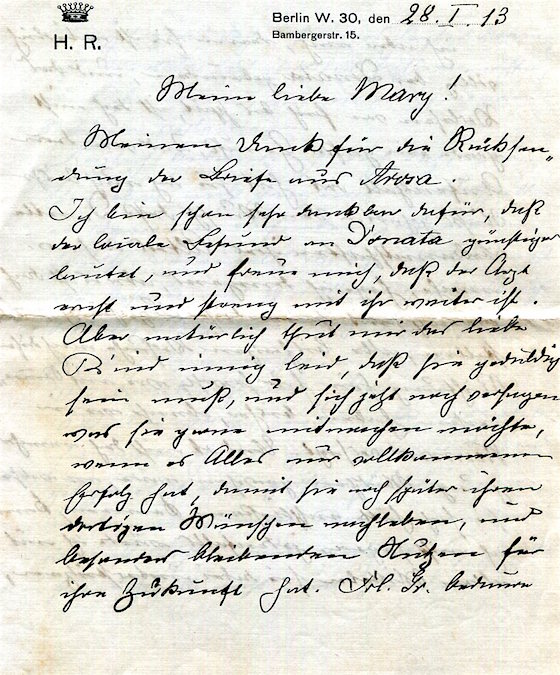 H. R.
Berlin W. 30, den 28. I. 13
Bambergerstr. 15.
Meine liebe Mary!
Meinen Dank für die Rücksen-
dung der Briefe aus Arosa.
Ich bin schon sehr dankbar dafür, daß
der locale Befund an Donata günstiger
lautet, und freue mich, daß der Arzt
ernst und streng mit ihr weiter ist.
Aber natürlich thut mir das liebe
Kind innig leid, daß sie geduldig
sein muß, und sich jetzt noch versagen
was sie gerne mitmachen möchte,
wenn es Alles nur vollkommenen
Erfolg hat, damit sie noch später ihren
dortigen Wünschen nachleben, und
besonders bleibenden Nutzen für
ihre Zukunft hat. Frl. Gr.